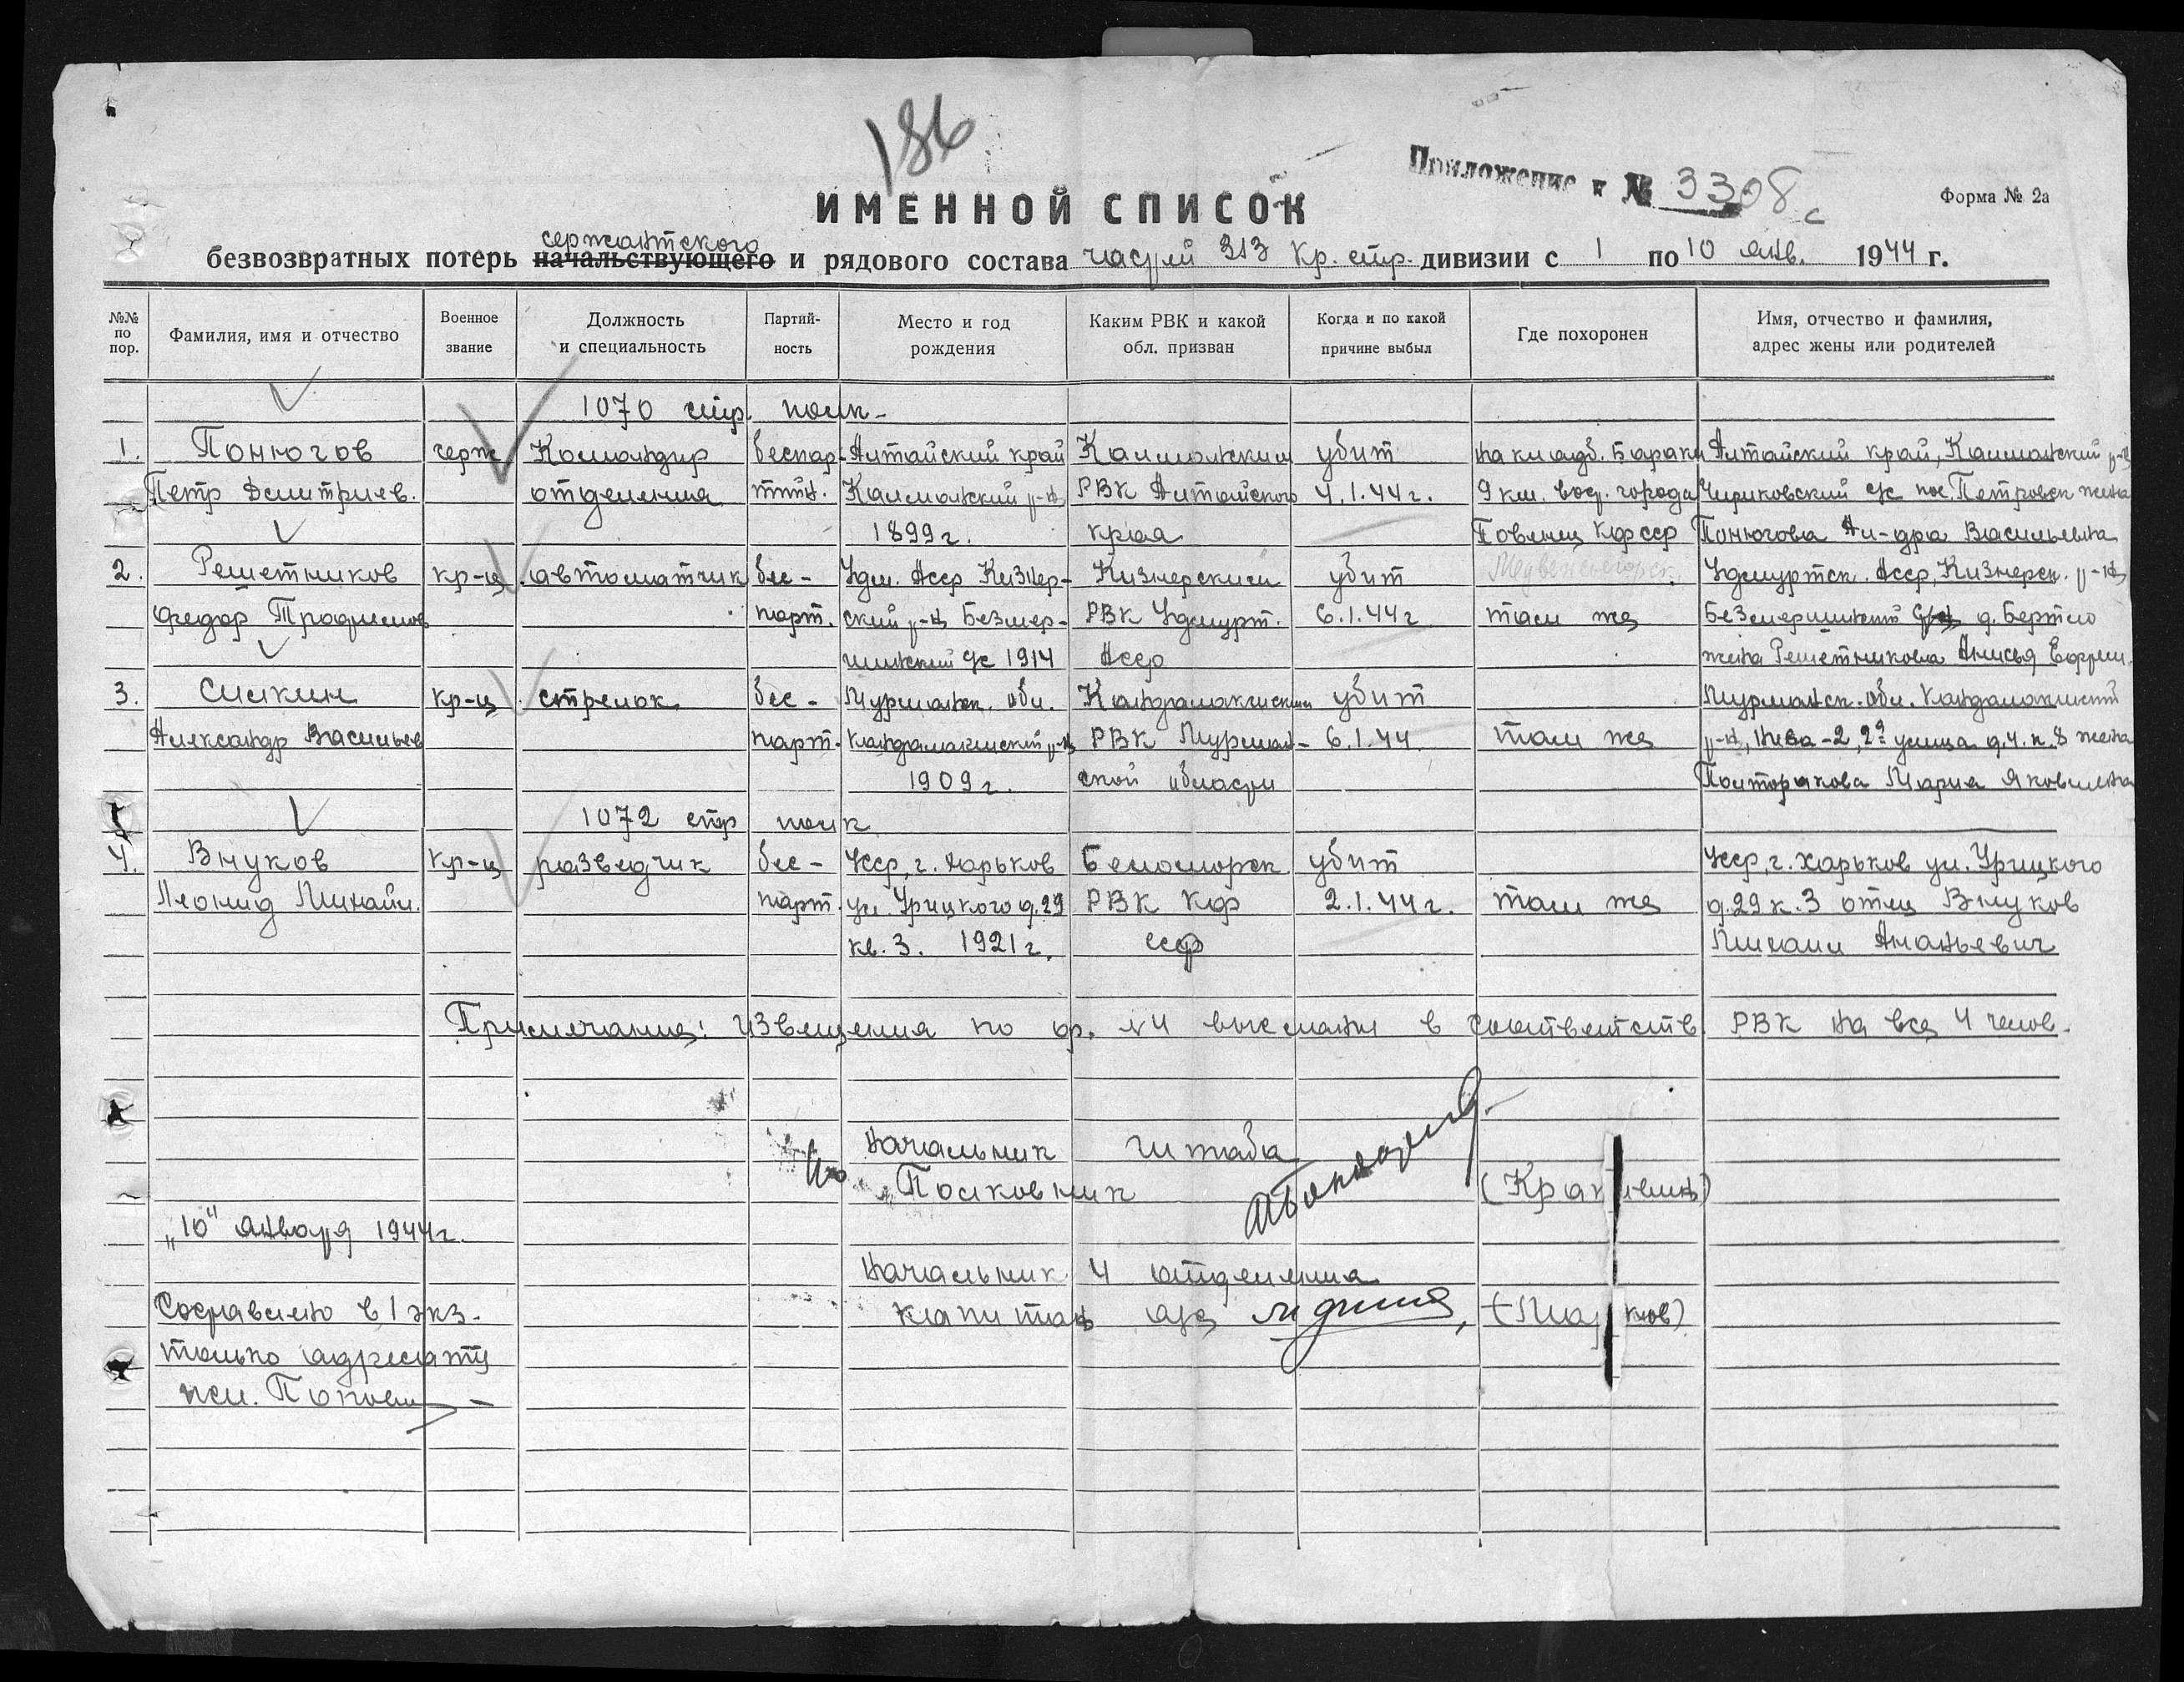 186
Приложение к № 3308с
Форма № 2а
ИМЕННОЙ СПИСОК
сержантского
безвозвратных потерь начальствующего и рядового состава частей 313 Кр. стр. дивизии с 1 по 10 янв. 1944 г.
№№ по пор.
Фамилия, имя и отчество
Военное звание
Должность и специальность
Партийность
Место и год рождения
Каким РВК и какой обл. призван
Когда и по какой причине выбыл
Где похоронен
Имя, отчество и фамилия, адрес жены или родителей
1070 стр. полк-
1. Понюгов серж Командир беспар- Алтайский край Калманским убит на кладб. Бараки Алтайский край, Калманский р-н
Петр Дмитриев. отделения тийн. Калманский р-н РВК Алтайского 4.1.44 г. 9 км. вост. города Чириковский с/с пос. Петровск жена
1899 г. края Повенец КФССР Понюгова Ал-дра Васильевна
2. Решетников кр-ц автоматчик бес- Удм. АССР Кизнер- Кизнерским убит Медвежьегорск. Удмуртск. АССР, Кизнерск. р-н
Федор Трофимов парт. ский р-н Безмер- РВК Удмурт. 6.1.44 г там же д. Бертло
шинский с/с 1914 АССР жена Решетникова Анисья Ефрем.
3. Силкин кр-ц стрелок бес- Мурманск. обл. Кандалакшским убит Мурманск. обл. Кандалакшский
Александр Васильев парт. Кандалакшский р-н РВК Мурман- 6.1.44 там же р-н, Нива-2, 2я улица д.4. к.8 жена
1909 г. ской области Полторакова Мария Яковлевна
1072 стр полк
4. Внуков кр-ц разведчик бес- УССР, г. Харьков Беломорск. убит УССР, г. Харьков ул. Урицкого
Леонид Михайл. парт. ул. Урицкого д.29 РВК КФ 2.1.44 г. там же д.29 к.3 отец Внуков
кв. 3. 1921 г. ССР Михаил Ананьевич
Примечание: Извещения по ф. № 4 высланы в соответств. РВК на все 4 челов.
Начальник штаба
Полковник
„10" января 1944 г.
Начальник 4 отделения
Составлено в 1 экз. капитан а/с
только адресату